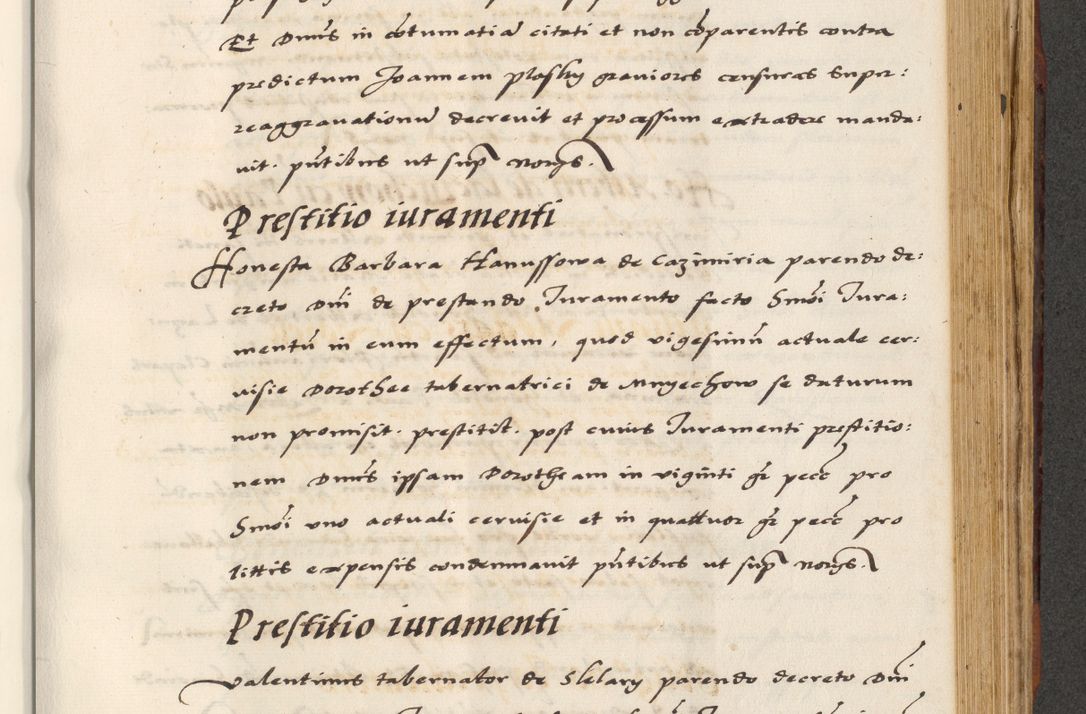 Et Dnus in cotumatia citati et non coparentis contra
predictum Joannem plasky graviores censuras super:
reaggravationu decrevit et processum extradere manda:
vit. pntibus ut sup norgs.
Prestitio iuramenti
Honesta Barbara Hanussowa de Cazimiria parendo de:
creto Dni de prestando Juramento facto Smoi Jura:
mentu in eum effectum, quod vigesimu actuale cer:
visie Dorothee tabernatrici de Mnyechow se daturum
non promisit. prestitit. post cuius Juramenti prestitio:
nem Dnus ipsam Dorotheam in viginti gr pecc pro
Smoi uno actuali cervisie et in quattuor gr pecc pro
littis expensis condemnavit pntibus ut sup norgs.
Prestitio iuramenti
Valentinus tabernator de parendo decreto Dni